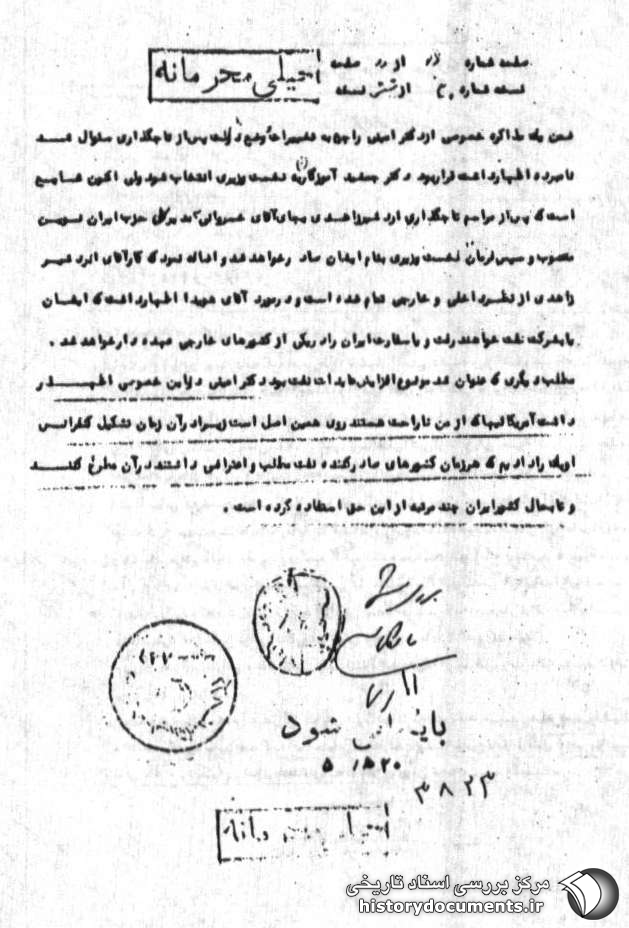 خیلی محرمانه
صفحه شماره از صفحه
نسخه شماره از شش نسخه
ضمن یک مذاکره خصوصی از دکتر امینی راجع به تغییرات وضع دولت پس از تاجگذاری سئوال شد
نامبرده اظهار داشت قرار بود دکتر جمشید آموزگار به نخست وزیری انتخاب شود ولی اکنون شایع
است که پس از مراسم تاجگذاری اردشیر زاهدی بجای آقای خسروانی به دبیر کلی حزب ایران نوین
منصوب و سپس فرمان نخست وزیری بنام ایشان صادر خواهد شد و اضافه نمود که کار آقای اردشیر
زاهدی از نظر داخلی و خارجی تمام شده است و در مورد آقای هویدا اظهار داشت که ایشان
یا بشرکت نفت خواهند رفت و یا سفارت ایران را در یکی از کشورهای خارجی عهده دار خواهد شد .
مطلب دیگری که عنوان شد موضوع افزایش عایدات نفت بود دکتر امینی در این خصوص اظهار
داشت آمریکائیها که از من ناراحت هستند روی همین اصل است زیرا در آن زمان تشکیل کنفرانس
اوپک را دادیم که هر زمان کشورهای صادر کننده نفت مطلب و اعتراضی داشتند در آن مطرح کنند
و تا بحال کشور ایران چند مرتبه از این حق استفاده کرده است .
بایگانی شود
۳۸۲۳
خیلی محرمانه
مرکز بررسی اسناد تاریخی
historydocuments.ir